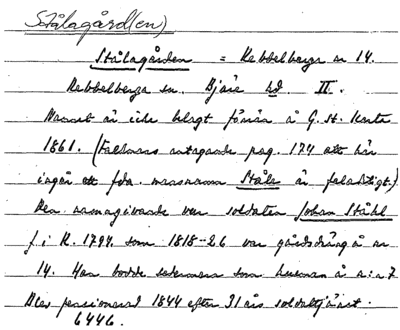 Stålagård(en)
Stålagården = Rebbelberga nr 14.
Rebbelberga sn. Bjäre hd II.
Namnet är icke belagt förrän å G. St. Karta
1861. (Falkmans antagande pag. 174 att här
ingår ett fda. mansnamn Ståle är felaktigt.)
Den namngivande var soldaten Johan Ståhl
f. i R. 1794 som 1818-26 var gårdsdräng å nr
14. Han bodde sedermera som husman å n:a 7
Blev pensionerad 1844 efter 21 års soldattjänst.
6446.